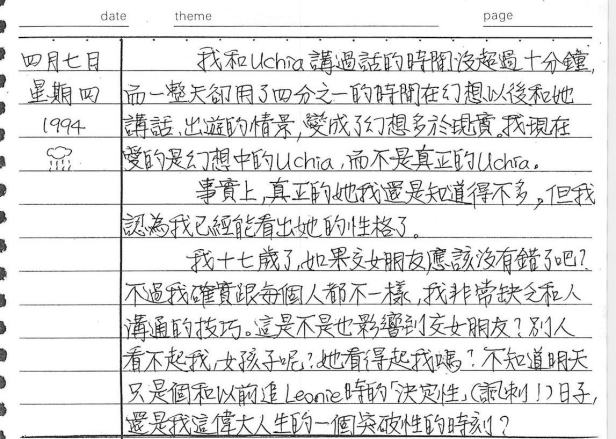 date theme page
四月七日 我和Uchia講過話的時間沒超過十分鐘,
星期四 而一整天卻用了四分之一的時間在幻想以後和她
1994 講話、出遊的情景,變成了幻想多於現實。我現在
愛的是幻想中的Uchia,而不是真正的Uchia。
事實上,真正的她我還是知道得不多。但我
認為我已經能看出她的性格了。
我十七歲了,如果交女朋友應該沒有錯了吧?
不過我確實跟每個人都不一樣,我非常缺乏和人
溝通的技巧。這是不是也影響到交女朋友?別人
看不起我,女孩子呢?她看得起我嗎?不知道明天
只是個和以前追Leonie時的「決定性」(諷刺!)日子,
還是我這偉大人生的一個突破性的時刻?